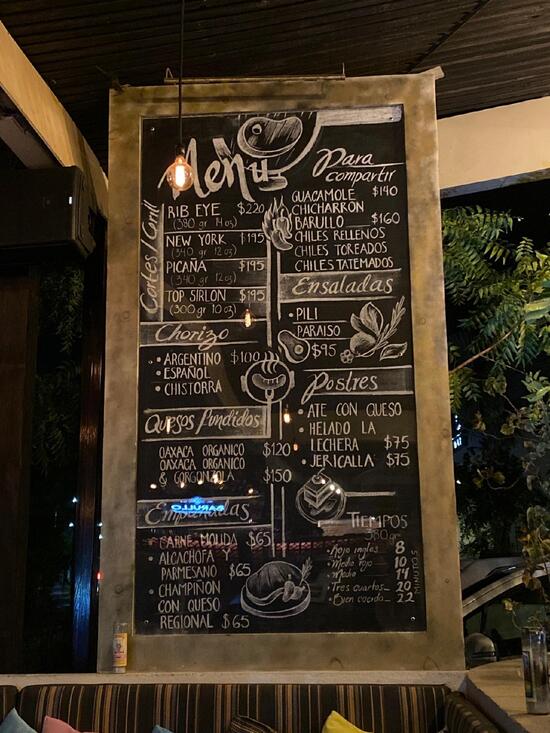 Menu
Cortes/Grill
RIB EYE $220
(380 gr 14 oz)
NEW YORK $195
(340 gr 12 oz)
PICAÑA $195
(340 gr 12 oz)
TOP SIRLON $195
(300 gr 10 oz)
Chorizo
• ARGENTINO $100
• ESPAÑOL
• CHISTORRA
Quesos fundidos
OAXACA ORGANICO $120
OAXACA ORGANICO
& GORGONZOLA $150
Empanadas
• CARNE MOLIDA $65
• ALCACHOFA
PARMESANO $65
• CHAMPIÑON
CON QUESO
REGIONAL $65
Para
compartir
GUACAMOLE $140
CHICHARRÓN
BARULLO $160
CHILES RELLENOS
CHILES TOREADOS
CHILES TATEMADOS
Ensaladas
• PILI
PARAISO
$95
Postres
• ATE CON QUESO
• HELADO LA
LECHERA $75
• JERICALLA $75
TIEMPOS
380 gr
• Rojo ingles 8
• Medio rojo 10
• Medio 14
• Tres cuartos 20
• Bien cocida 22
MINUTOS
BARULLO